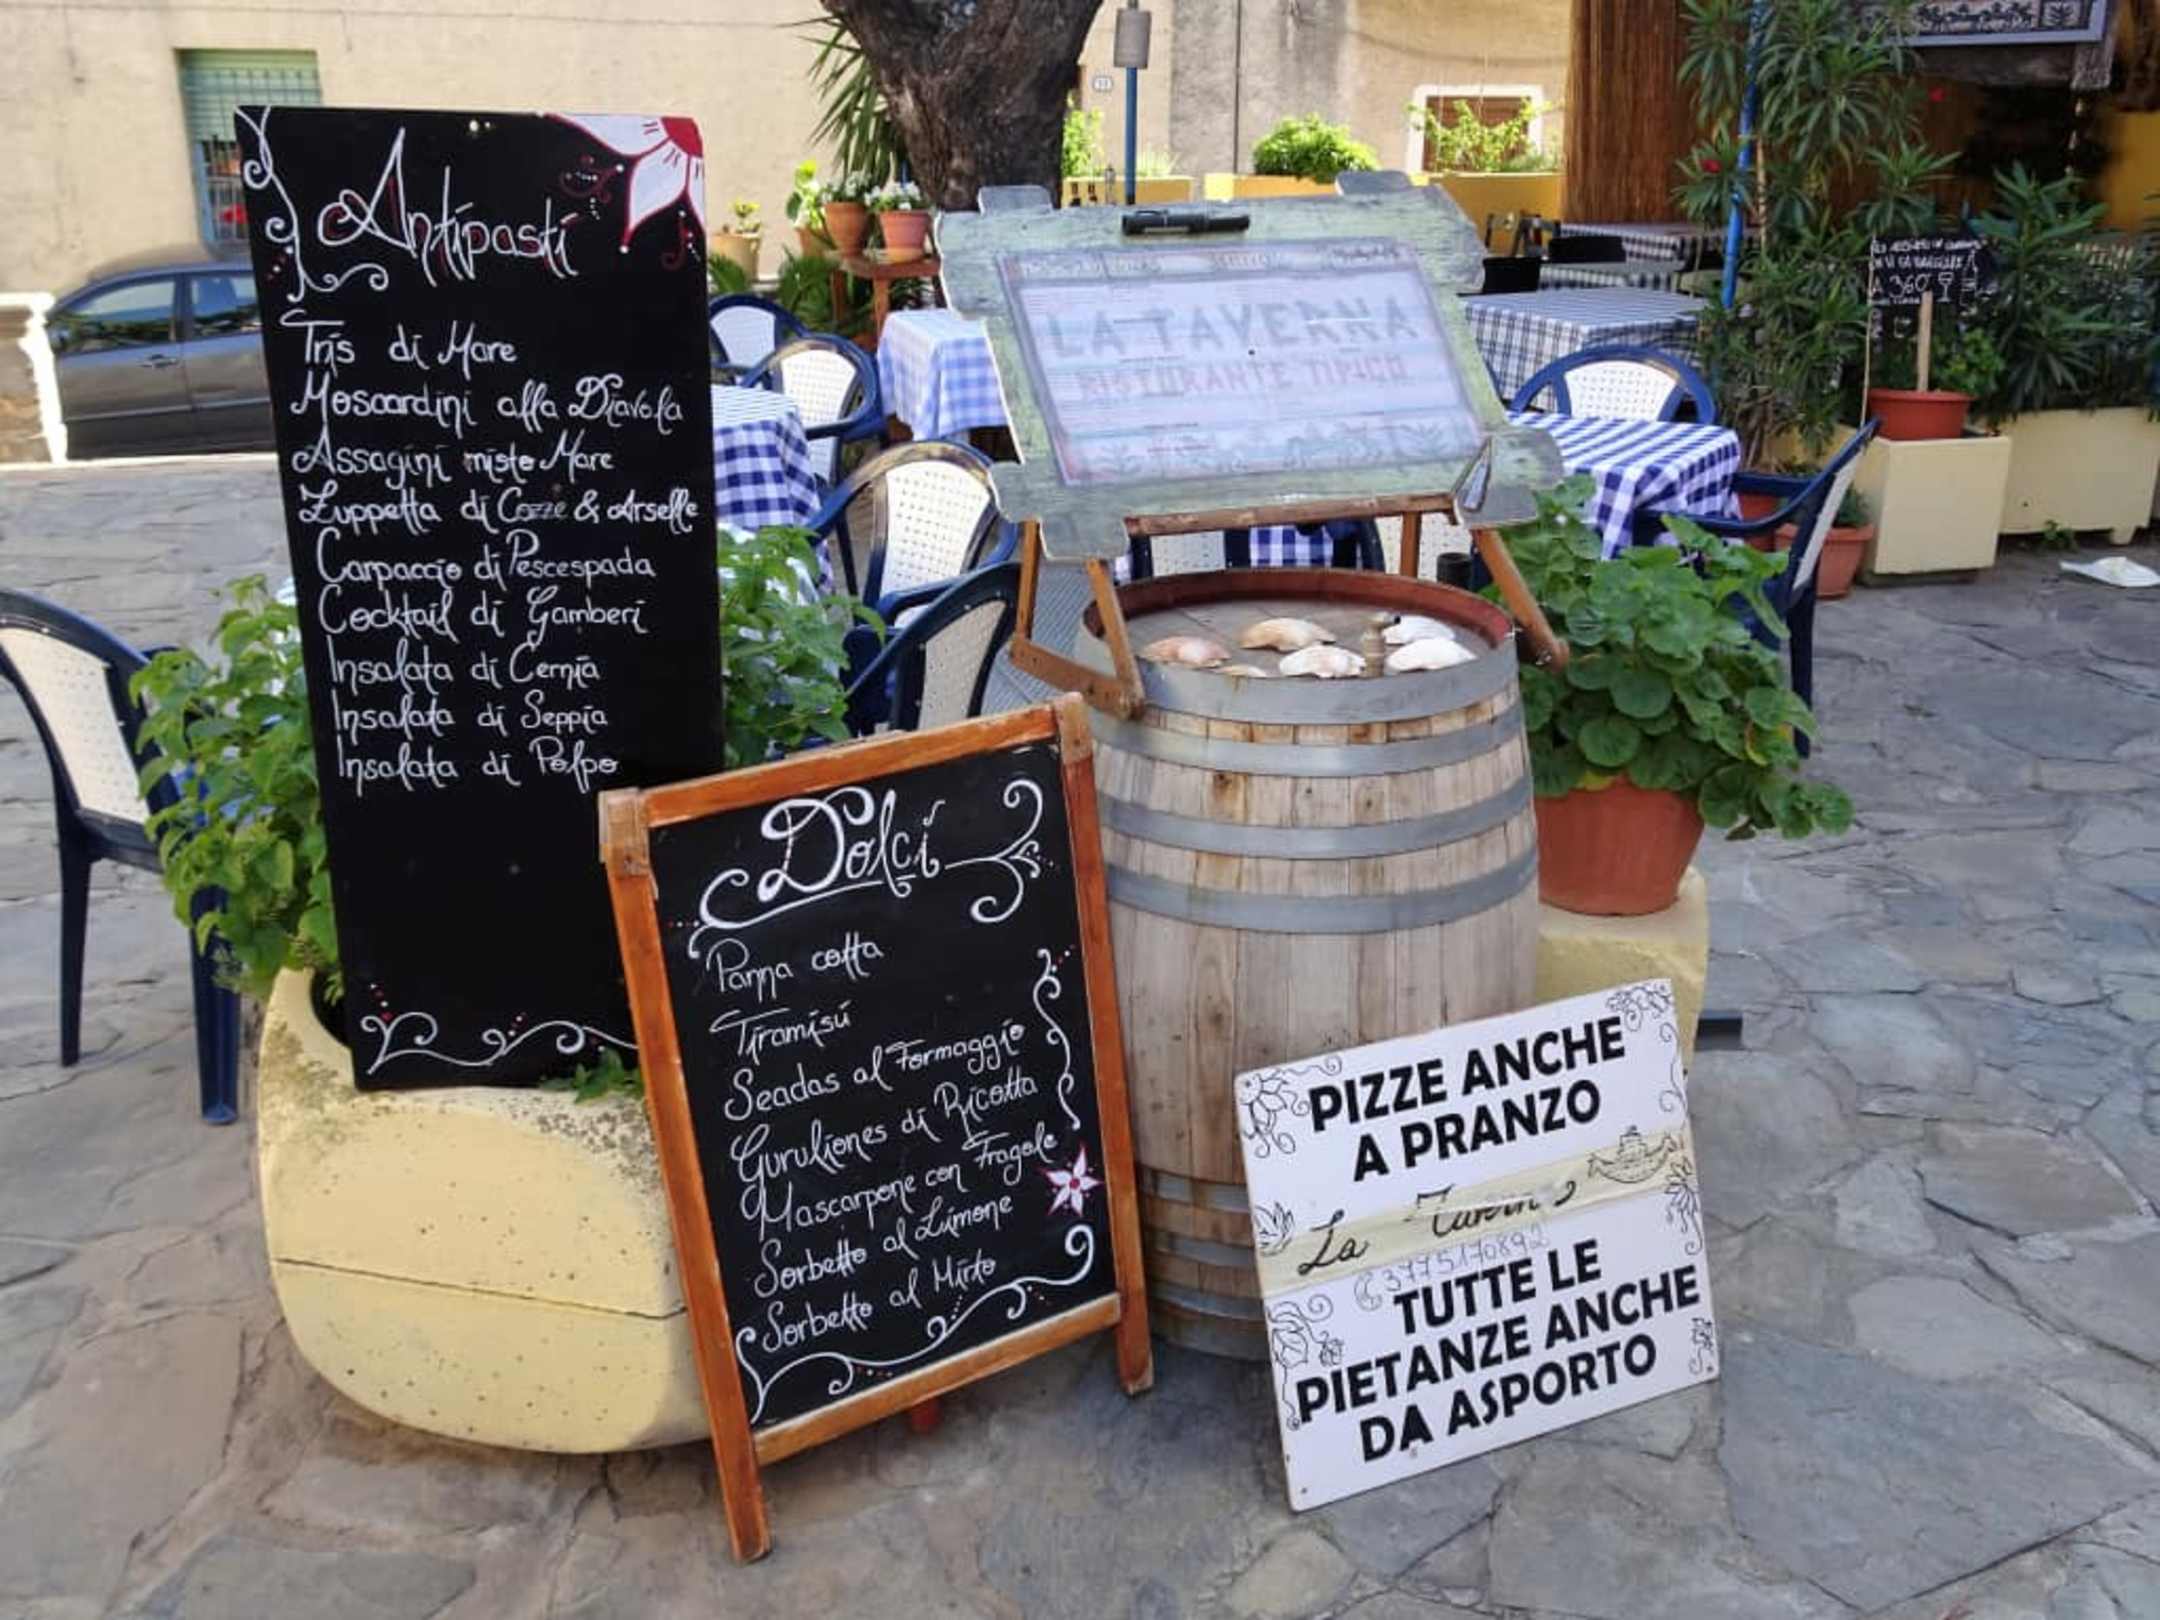 Antipasti
Tris di Mare
Moscardini alla Diavola
Assagini misto Mare
Zuppetta di Cozze & Arselle
Carpaccio di Pescespada
Cocktail di Gamberi
Insalata di Cernia
Insalata di Seppia
Insalata di Polpo
Dolci
Panna cotta
Tiramisú
Seadas al Formaggio
Guruliones di Ricotta
Mascarpone con Fragole
Sorbetto al Limone
Sorbetto al Mirto
LA TAVERNA
RISTORANTE TIPICO
PIZZE ANCHE
A PRANZO
La Taverna
3775170892
TUTTE LE
PIETANZE ANCHE
DA ASPORTO
A 360°